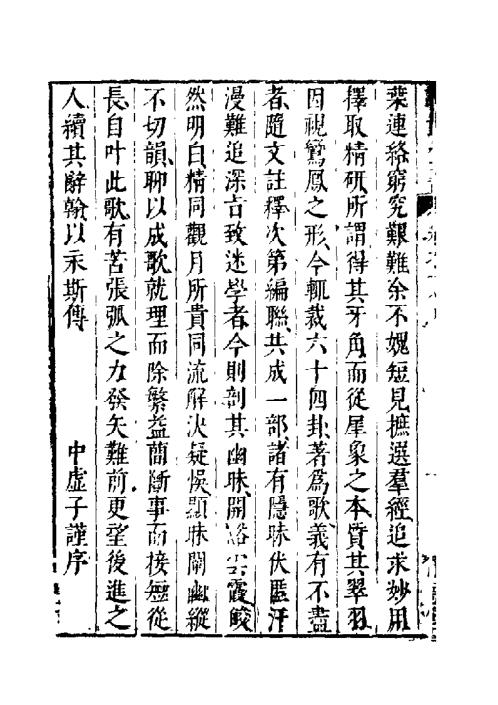 葉連絡窮究艱難余不媿短見摭選羣經追求妙用
擇取精研所謂得其牙角而從犀象之本質其翠羽
因視鸞鳳之形今輒裁六十四卦著爲歌義有不盡
者隨文註釋次第編聯共成一部諸有隱昧伏匿汗
漫難追深古致迷學者今則剖其幽昧開谿雲霞皎
然明白精同觀月所貴同流解決疑悞顯昧闡幽縱
不切韻聊以成歌就理而除繁益蕳斷事而接短從
長自叶此歌有苦張弧之力發矢難前更望後進之
人續其辭翰以永斯傳
中虛子謹序